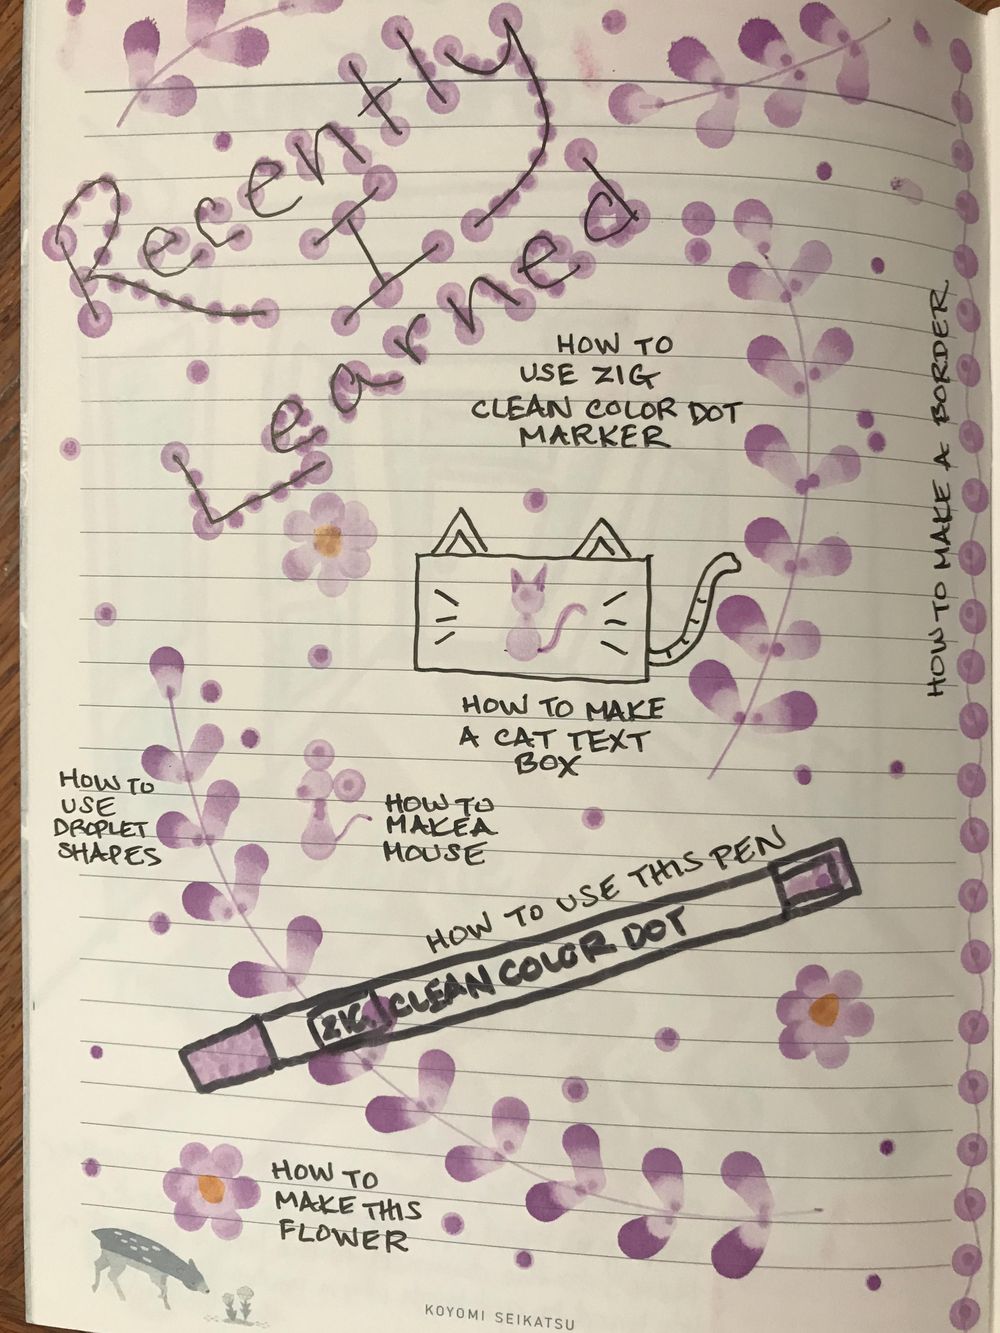 Recently
I
Learned
HOW TO
USE ZIG
CLEAN COLOR DOT
MARKER
HOW TO MAKE A BORDER
HOW TO MAKE
A CAT TEXT
BOX
HOW TO
USE
DROPLET
SHAPES
HOW TO
MAKE A
MOUSE
HOW TO USE THIS PEN
ZIG CLEAN COLOR DOT
HOW TO
MAKE THIS
FLOWER
KOYOMI SEIKATSU